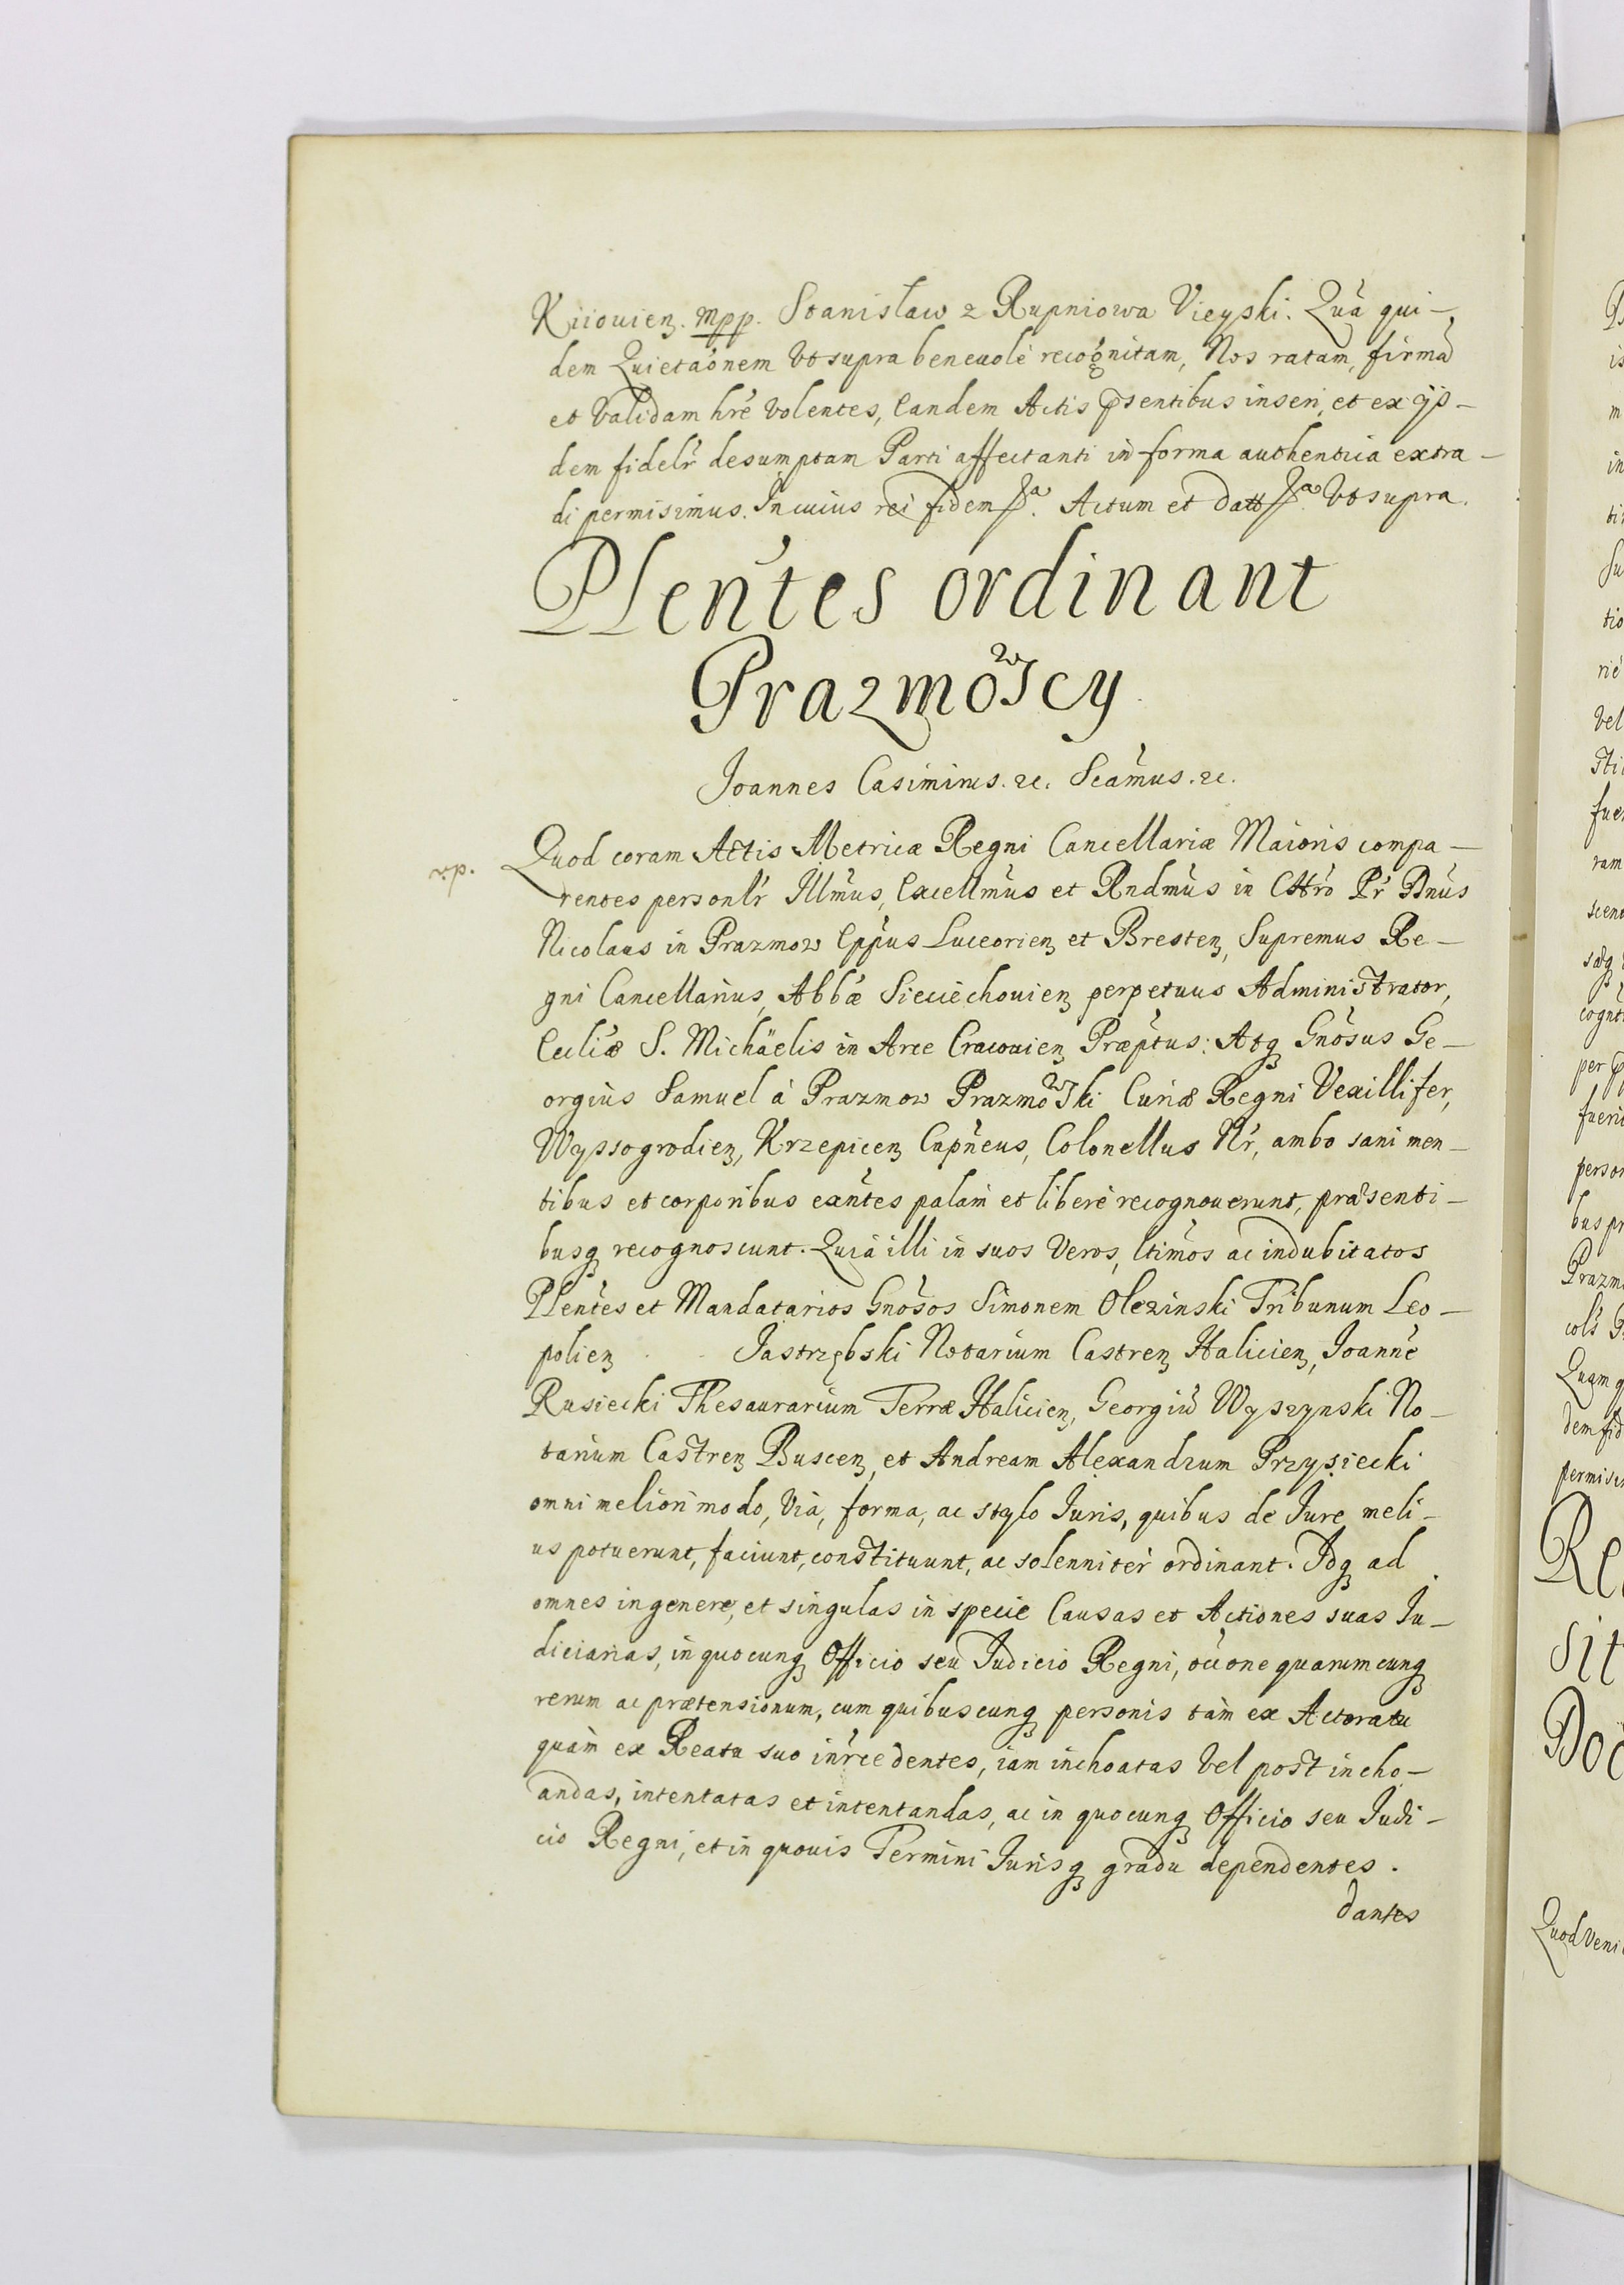 Kiiouien. mpp. Stanisław z Rupniowa Vieyski. Quā qui-
dem Quietaōnem Vt supra beneuolè recognitam, Nos ratam, firmā
et Validam hrē Volentes, Eandem Actis pſentibus inseri, et ex ijs-
dem fidelr̄ desumptam Parti affectanti in forma authentica extra-
di permisimus. In cuius rei fidem &a. Actum et datt &a Vt supra.
Plen̄tes ordinant
Prazmowscy
Joannes Casimirus. &c. Scām̄us. &c.
Quod coram Actis Metricæ Regni Cancellariæ Maioris compa-
rentes personlr̄ Illm̄us, Excellm̄us et Rndm̄us in Chro Pr̄ Dn̄us
Nicolaus in Prazmow Epp̄us Luceorien et Bresten, Supremus Re-
gni Cancellarius, Abb̄æ Sieciechouien perpetuus Administrator,
Eccliæ S. Michäelis in Arce Cracouien Præptus: Atq Gnōsus Ge-
orgius Samuel à Prazmow Prazmowski Curiæ Regni Vexillifer,
Wyssogrodien, Krzepicen Capn̄eus, Colonellus Nr̄, ambo sani men-
tibus et corporibus exn̄tes palàm et liberè recognouerunt, præsenti-
busq recognoscunt. Quià illi in suos Veros, ltim̄os ac indubitatos
Plen̄tes et Mandatarios Gnōsos Simonem Olezinski Tribunum Leo-
polien Jastrzębski Notarium Castren Halicien, Joannē
Rusiecki Thesaurarium Terræ Halicien, Georgiū Wyszynski No-
tarium Castren Buscen, et Andream Alexandrum Przysiecki
omni meliori modo, Vià, forma, ac stylo Iuris, quibus de Iure meli-
us potuerunt, faciunt, constituunt, ac solenniter ordinant. Idq ad
omnes in genere, et singulas in specie Causas et Actiones suas Iu-
diciarias, in quocunq Officio seu Iudicio Regni, oc̄c̄one quarumcunq
rerum ac prætensionum, cum quibuscunq personis tàm ex Actoratu
quàm ex Reatu suo inr̄cedentes, iam inchoatas Vel post incho-
andas, intentatas et intentandas, ac in quocunq Officio seu Iudi-
cio Regni, et in quouis Termini Iurisq gradu dependentes.
dantes